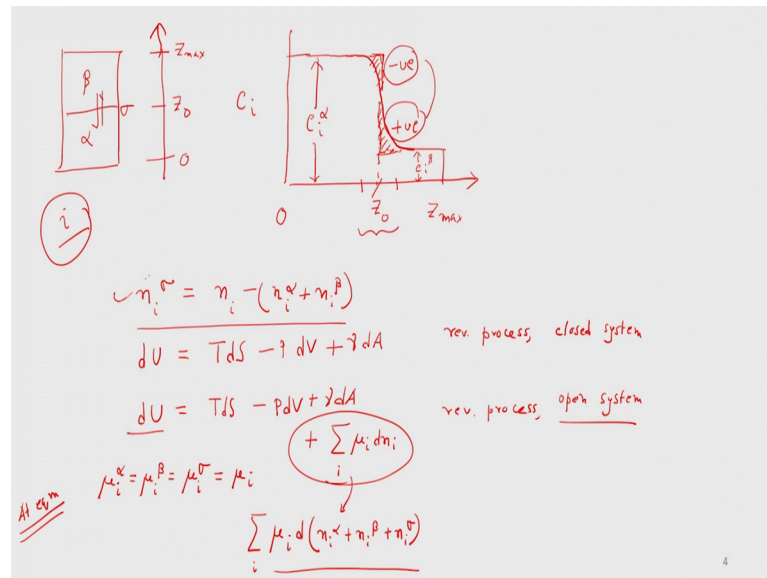 Zmax
β
Z₀
σ
α
0
Cᵢ
Cᵢᵅ
-ve
+ve
Cᵢᵝ
0
Z₀
Zmax
i
nᵢ^σ = nᵢ - (nᵢ^α + nᵢ^β)
dU = TdS - PdV + γdA rev. process, closed system
dU = TdS - PdV + γdA rev. process, open system
+ Σᵢ μᵢdnᵢ
At eqm μᵢ^α = μᵢ^β = μᵢ^σ = μᵢ
Σᵢ μᵢd(nᵢ^α + nᵢ^β + nᵢ^σ)
4